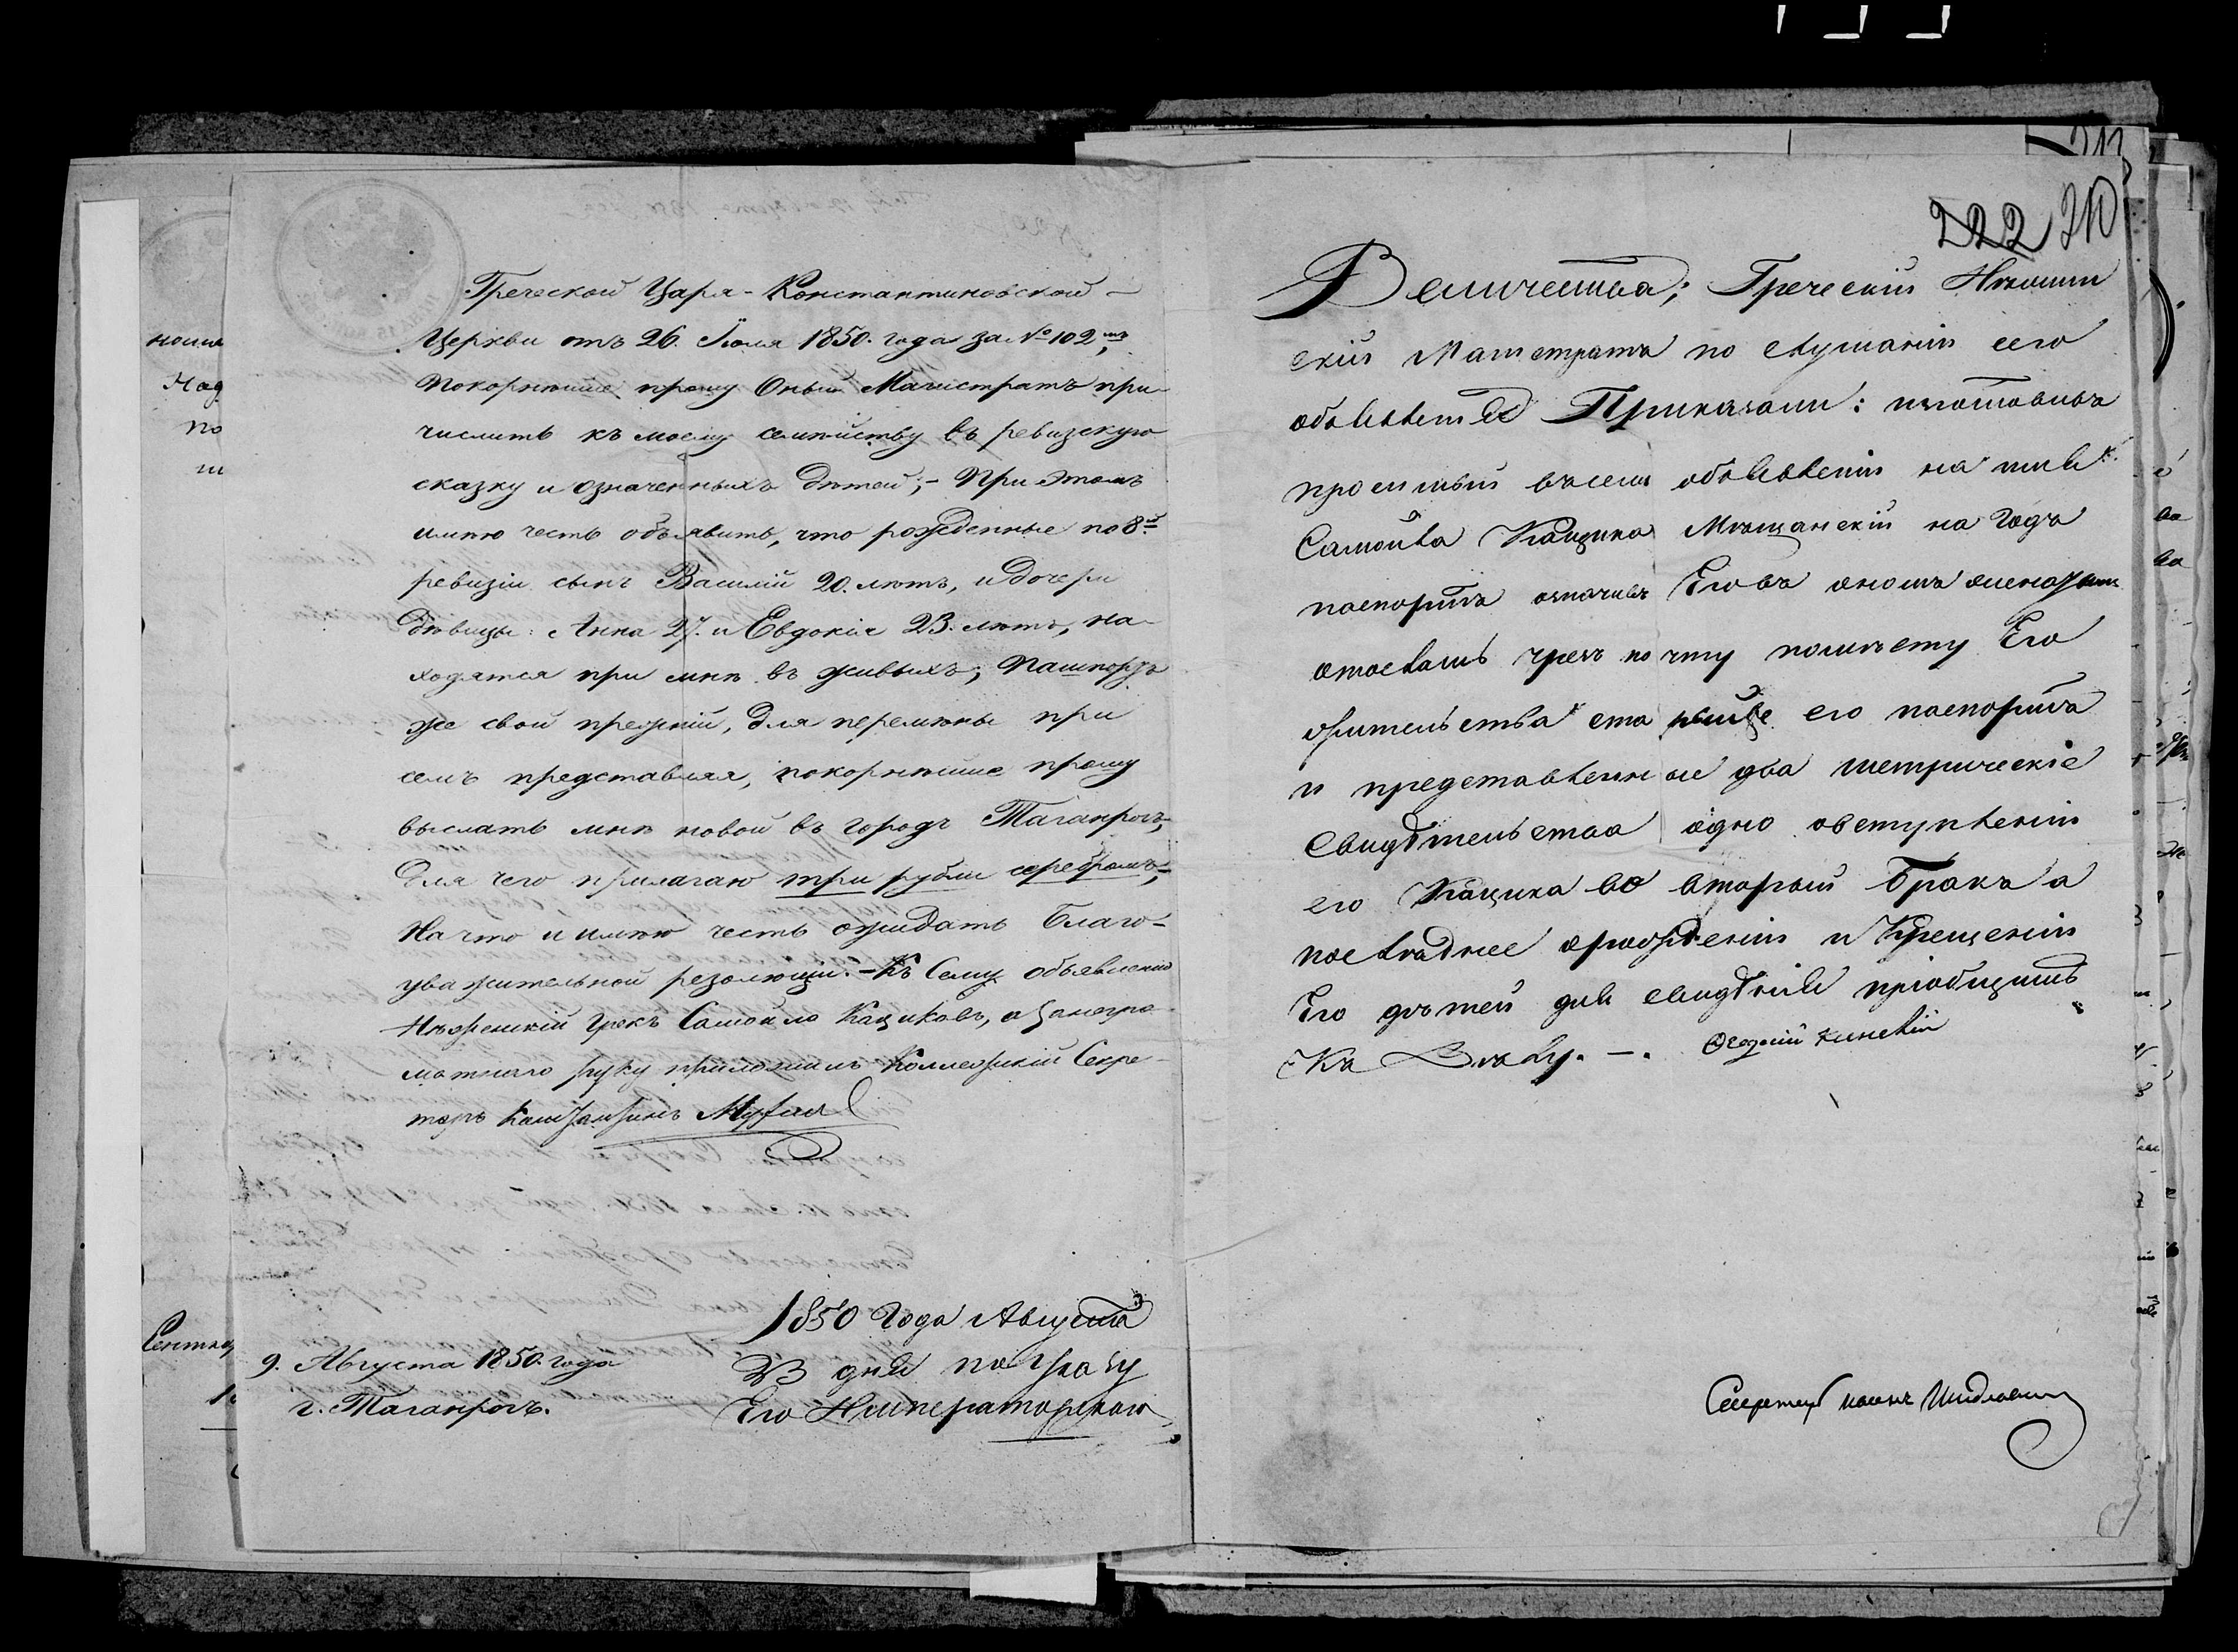 Греческой Царя-Константиновской –
Церкви отъ 26. Іюля 1850. года за № 102мъ,
покорнѣйше прошу Оный Магистратъ при-
числить къ моему семѣйству въ ревизскую
сказку и означенныхъ дѣтей; – При этомъ
имѣю честь объявить, что рожденные по 8й
ревизіи сынъ Василій 20. лѣтъ, и дочери
дѣвицы: Анна 27. и Евдокія 23. лѣтъ, на-
ходятся при мнѣ въ живыхъ; Пашпортъ
же свой прежній, для перемѣны при
семъ представляя, покорнѣйше прошу
выслать мнѣ новой въ городъ Таганрогъ,
для чего прилагаю три рубли серебромъ,
на что и имѣю честь ожидать благо-
уважительной резолюціи. – Къ Сему объявленію
Нѣжинскій Грекъ Самойло Кацыковъ, а за негра-
мотнаго руку приложилъ Коллежскій Секре-
таръ
9. Августа 1850. года
г. Таганрогъ.
1850 Года Августа
23 дня по Указу
Его Императорскаго
222 210
Величества; Греческій Нѣжин
скій Магистратъ по слушаніи сего
объявленія Приказали: изготовивъ
просимый въ семъ объявленіи на имя
Самойла Кацика Мѣщанскій на Годъ
паспортъ означивъ Его въ ономъ
отослать чрезъ почту по мѣсту Его
жительства его паспорта
и представленные два метрическіе
Свидѣтельства одно о вступленіи
его Кацика во вторый бракъ а
послѣднее о рожденіи и Крещеніи
Его дѣтей для свидѣнія пріобщить
Къ Дѣлу. –.
Секретарь